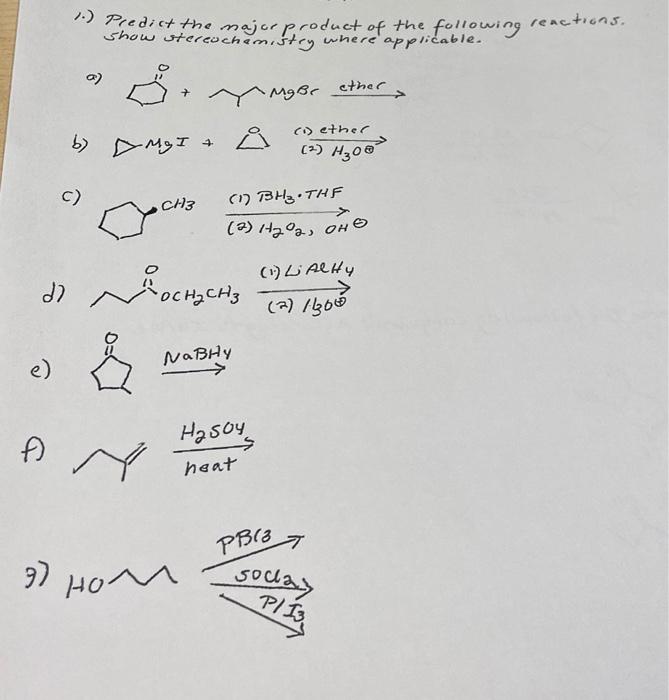 1.) Predict the major product of the following reactions.
show stereochemistry where applicable.
a) O + MgBr ether
b) MgI + O (1) ether
(2) H3O⊕
c) CH3 (1) BH3·THF
(2) H2O2, OH⊖
d) O OCH2CH3 (1) LiAlH4
(2) H3O⊕
e) O NaBH4
f) H2SO4
heat
g) HO PBr3
SOCl2
P/I3